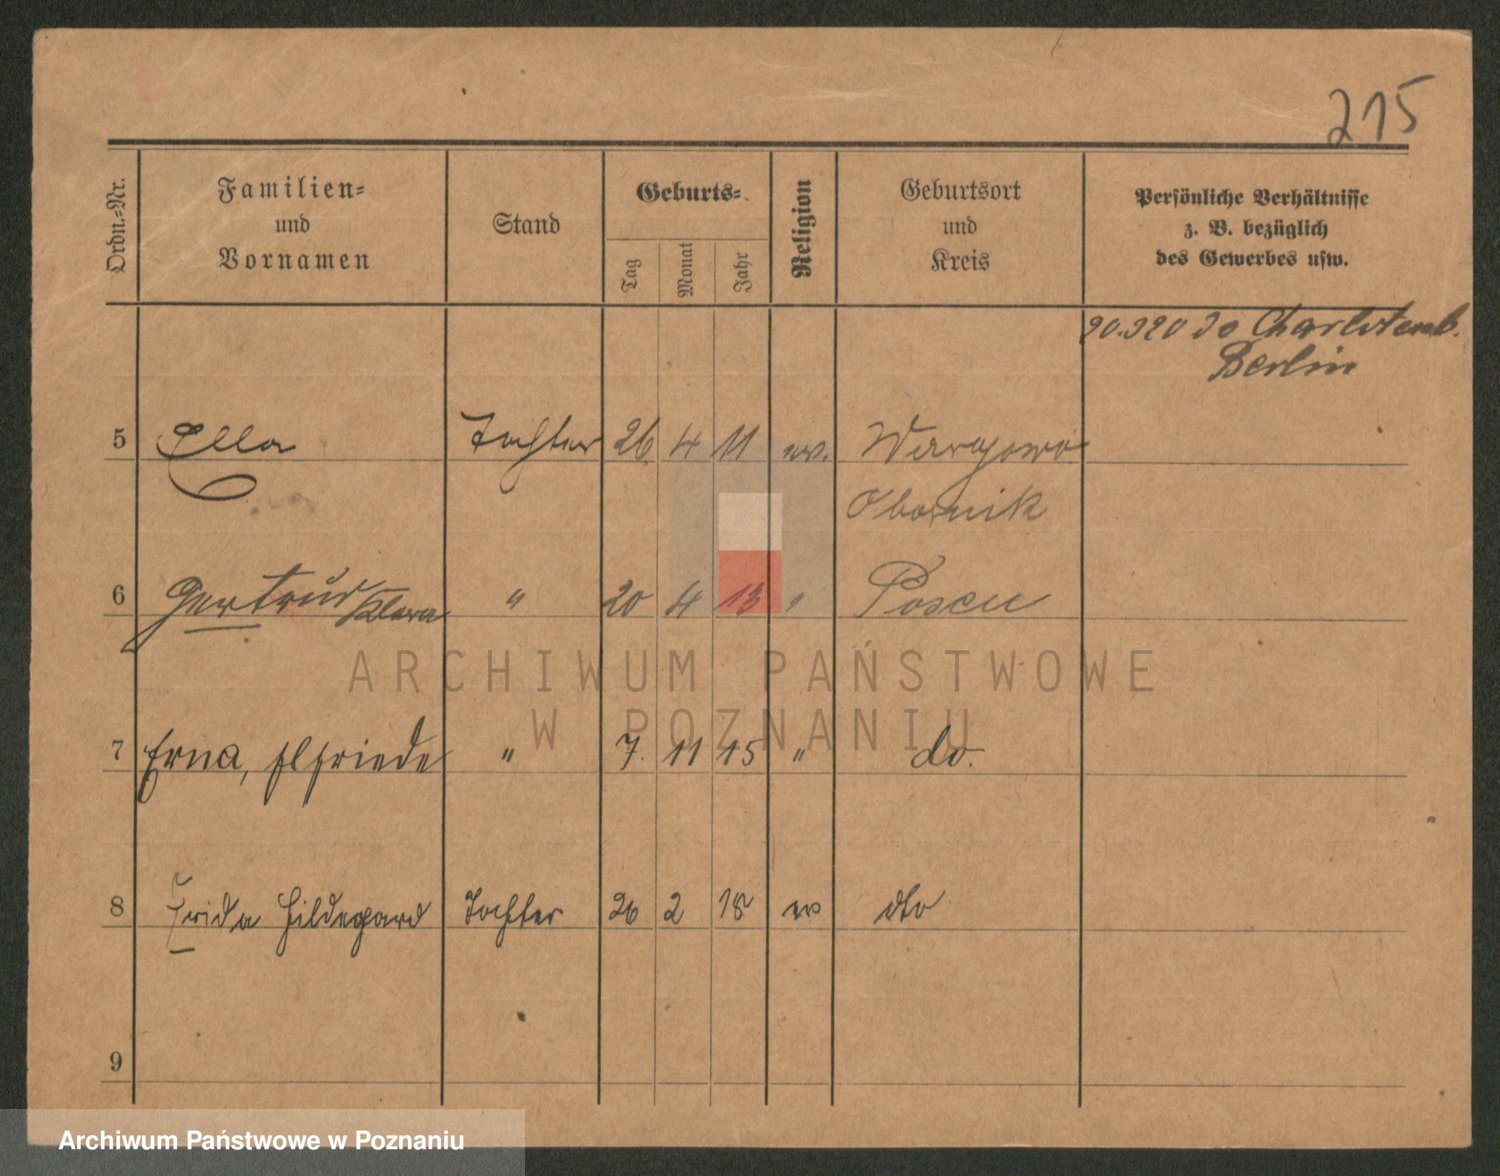 215
Ordn.-Nr.
Familien-
und
Vornamen
Stand
Geburts-
Tag
Monat
Jahr
Religion
Geburtsort
und
Kreis
Persönliche Verhältnisse
z. B. bezüglich
des Gewerbes usw.
Charlottenb.
Berlin
5 Ella Tochter 26 4 11 ev. Wargowo
Obornik
6 Gertrud Klara " 20 4 13 " Posen
7 Erna, Elfriede " 7. 11 15 " do.
8 Frida Hildegard Tochter 26 2 18 ev dto
9
ARCHIWUM PAŃSTWOWE
W POZNANIU
Archiwum Państwowe w Poznaniu